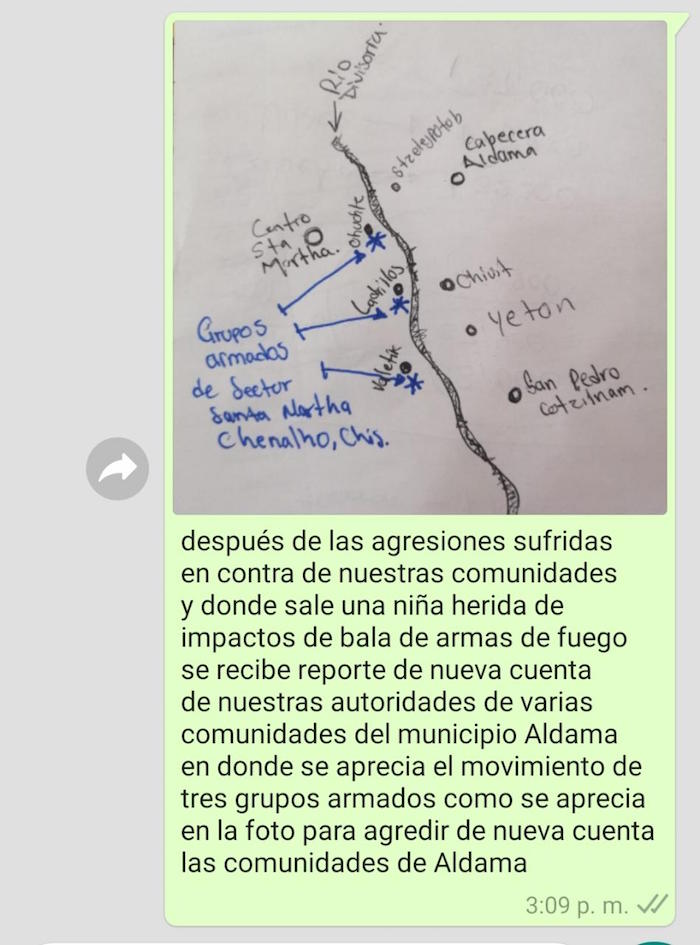 Río
Divisoria.
Stzeleypotob
Cabecera
Aldama
Centro
Sta
Martha.
Chuchte
Chivit
Yeton
Valetik
San Pedro
Cotzilnam.
Grupos
armados
de Sector
Santa Martha
Chenalho, Chis.
después de las agresiones sufridas
en contra de nuestras comunidades
y donde sale una niña herida de
impactos de bala de armas de fuego
se recibe reporte de nueva cuenta
de nuestras autoridades de varias
comunidades del municipio Aldama
en donde se aprecia el movimiento de
tres grupos armados como se aprecia
en la foto para agredir de nueva cuenta
las comunidades de Aldama
3:09 p. m.